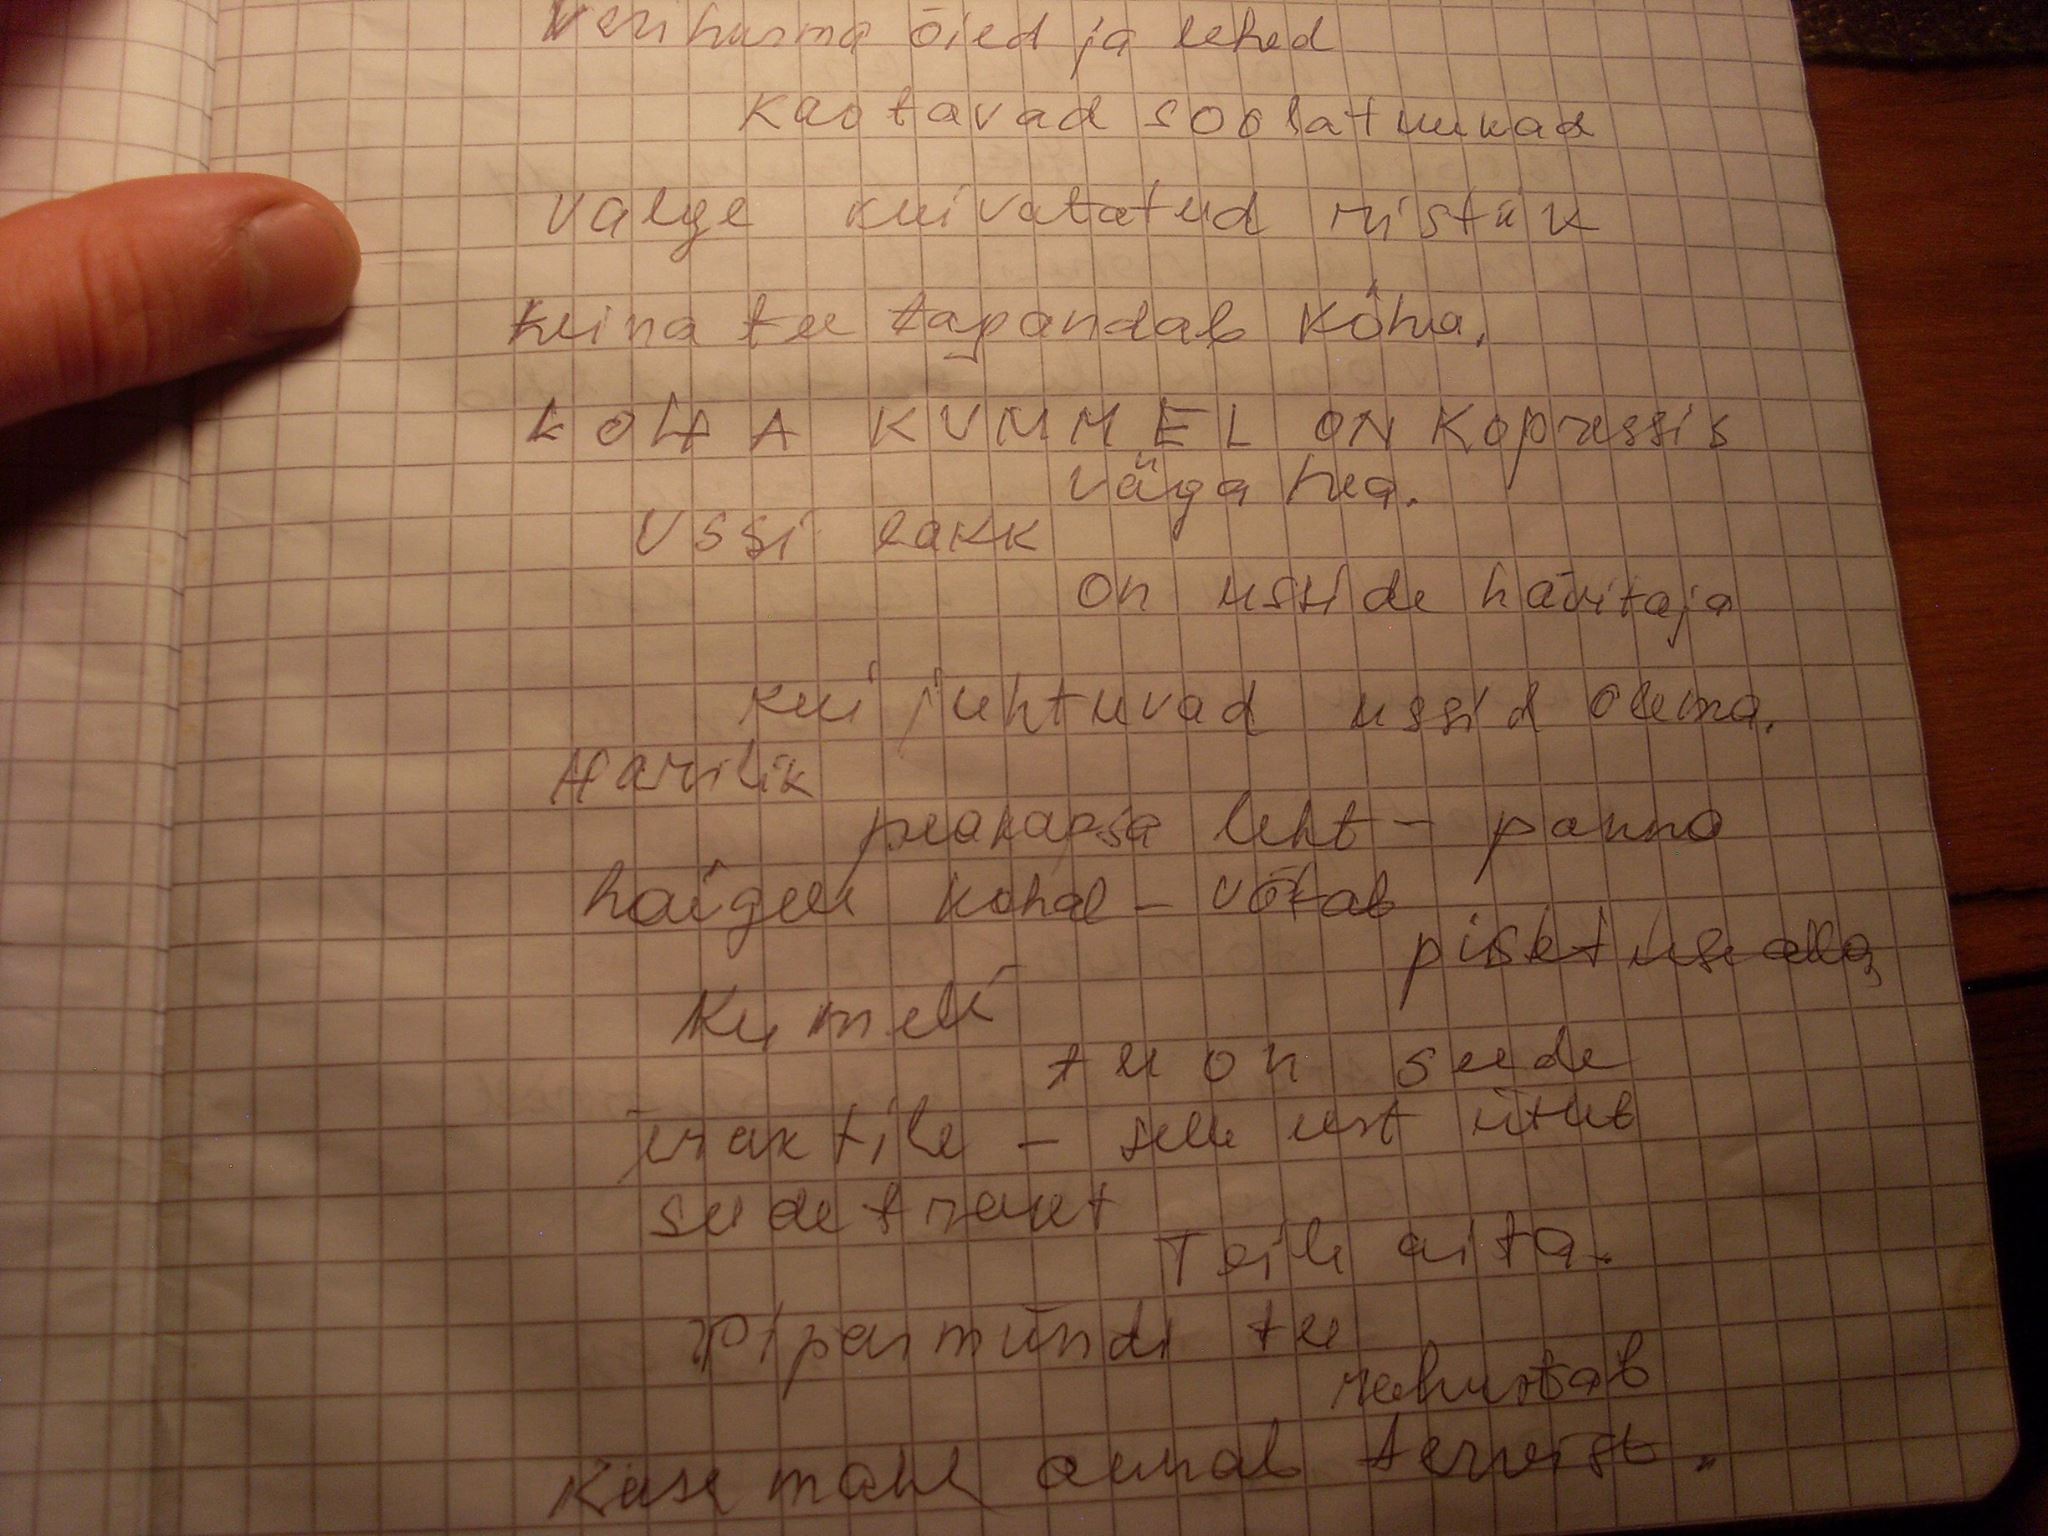 Verihurma õied ja lehed
kaotavad soolatuukad
valge kuivatatud ristik
heina tee tapandab köha.
KOHA KUMMEL ON Kopressis
väga hea.
Ussi lakk
on usside hävitaja
kui juhtuvad ussid olema.
Harilik
peakapsa leht - panna
haigele kohal - võtab
pisktuse alla,
Kumeli
tee on seede
traktile - selle eest ütleb
seedetrakt
Teile aita.
Piparmündi tee
rahustab
Kase mahl annab tervist.